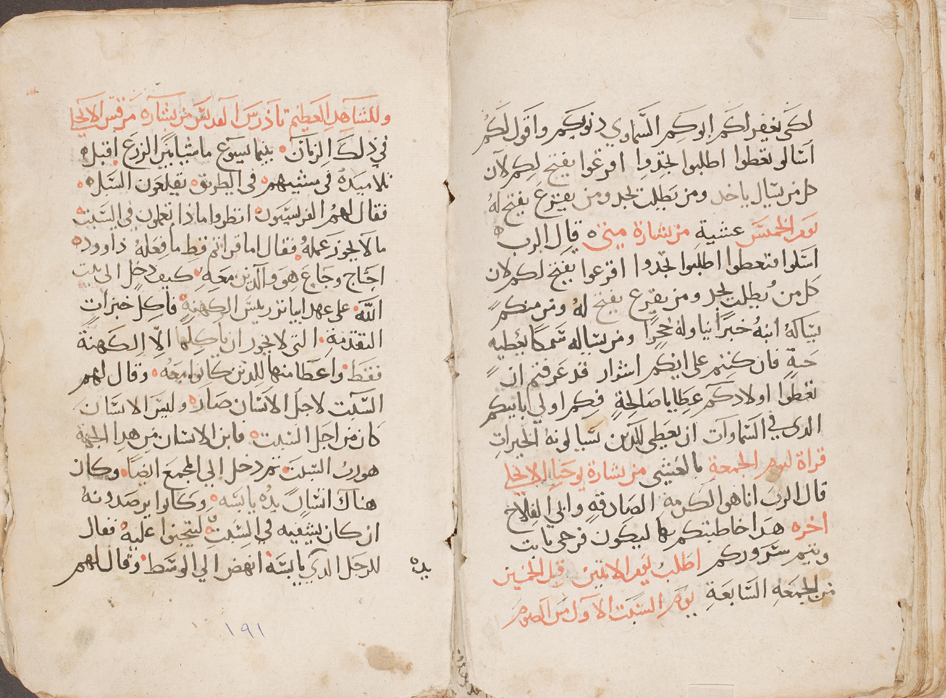 لكي يغفر لكم ابوكم السماوي ذنوبكم واقول لكم
اسالو تعطوا اطلبوا تجدوا اقرعوا يفتح لكم لان
كل من يسال ياخد ومن يطلب يجد ومن يقرع يفتح له
يوم الخميس عشية من بشارة متى قال الرب
اسئلوا فتعطوا اطلبوا تجدوا اقرعوا يفتح لكم لان
كل من يطلب يجد ومن يقرع يفتح له ومن منكم
يساله ابنه خبزا يناوله حجرا ومن يساله سمكا يعطيه
حية فان كنتم على انكم اشرار قد عرفتم ان
تعطوا اولادكم عطايا صالحة فكم اولى بابيكم
الدي في السماوات ان يعطي للدين يسالونه الخيرات
قراة ليوم الجمعة بالعشي من بشارة يوحنا الانجلي
قال الرب انا هي الكرمة الصادقة وابي الفلاح
اخره هدا خاطبتكم بها ليكون فرحي ثابت
ويتم سروركم اطلب يوم الاتنين قبل الخميس
من الجمعه السابعة يوم السبت الاول من الصوم
وللشاهد العظيم تاذرس القديس من بشاره مرقس الانجلي
في ذلك الزمان بينما يسوع ماشيا بين الزرع اقبل
تلاميده في مشيهم في الطريق يقلعون السبل
فقال لهم الفريسيون انظروا ماذا تعملون في السبت
ما لا يجوز عمله فقال اما قراتم قط ما فعله داوود
احتاج وجاع هو والدين معه كيف دخل الى بيت
الله على عهد ابياتر رييس الكهنة فاكل خبزات
التقدمة التي لا يجوز ان ياكلها الا الكهنة
فقط واعطا منها للدين كانوا معه وقال لهم
السبت لاجل الانسان صار وليس الانسان
كان من اجل السبت فابن الانسان من هدا الجهة
هو رب السبت تم دخل الي المجمع ايضا وكان
هناك انسان يده يابسه وكانوا يرصدونه
ان كان يشفيه في السبت ليتحنوا عليه فقال
للرجل الدي يابسة انهض الي الوسط وقال لهم
يده
١٩١